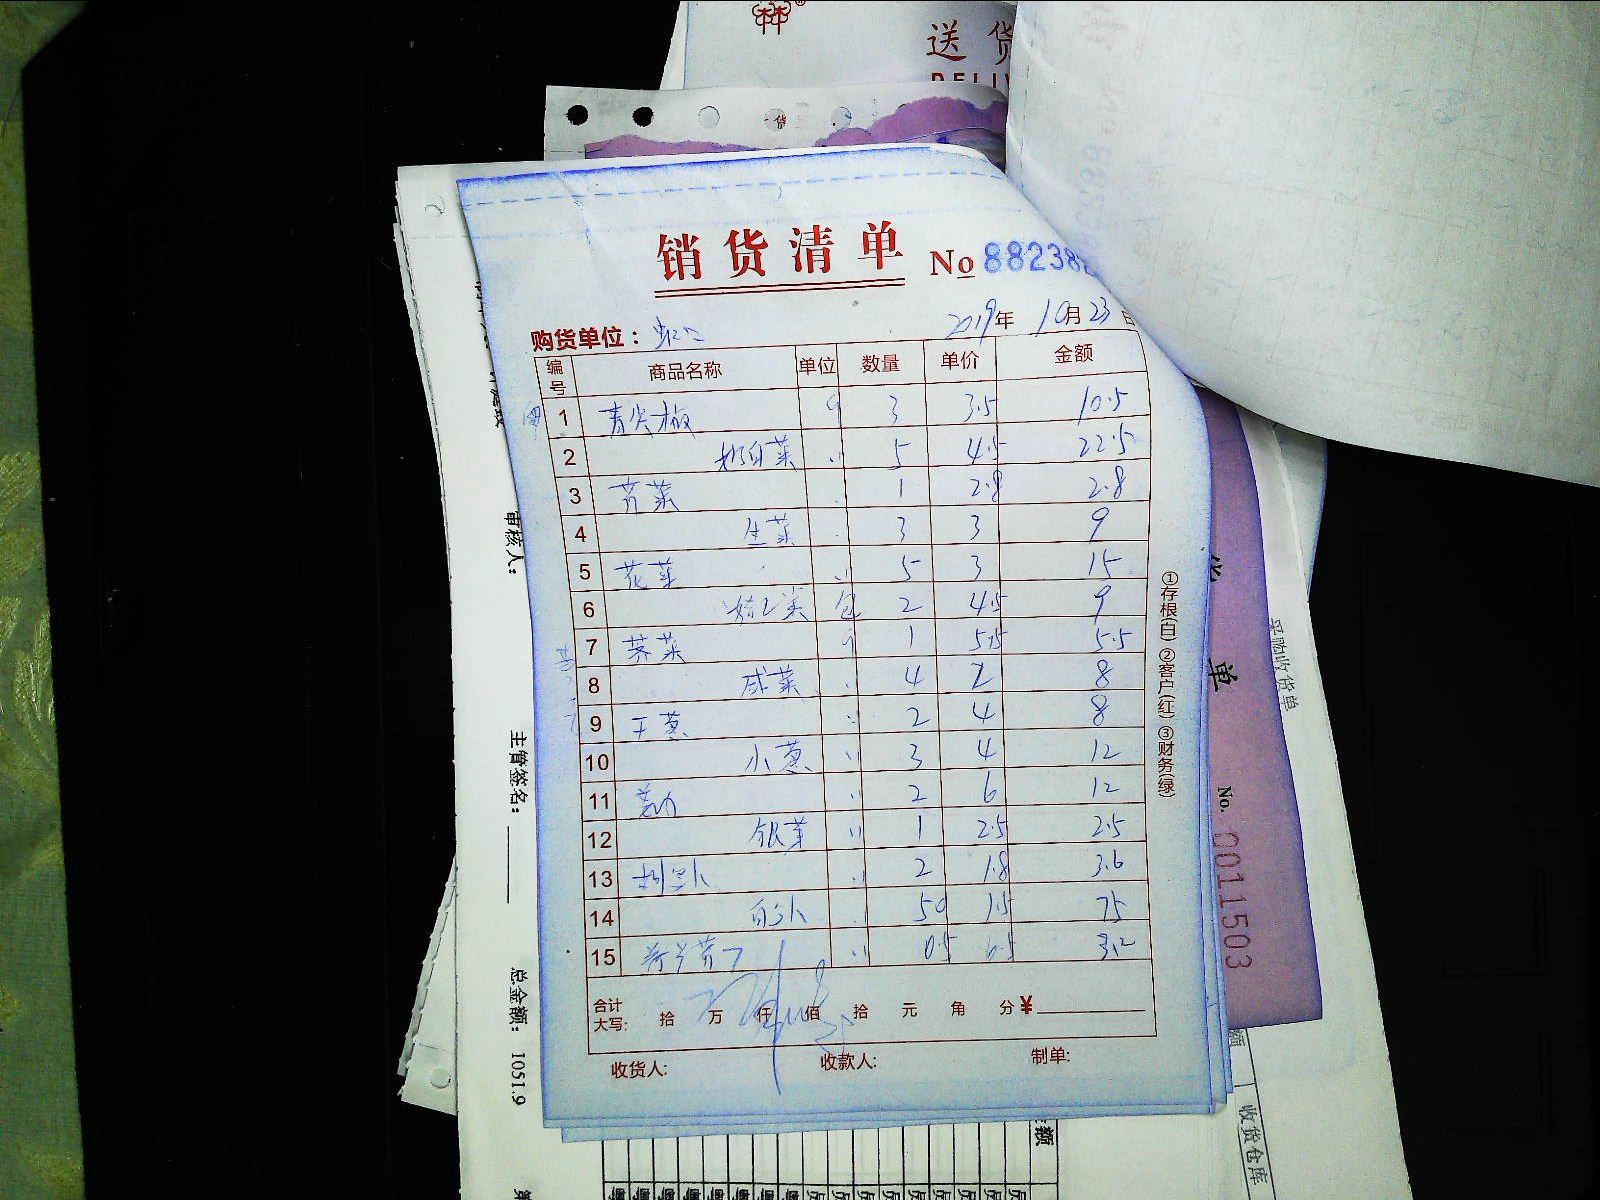 送货
DELIV
销货清单 No 88238
购货单位: 虹口 2019年 10月23日
编号 商品名称 单位 数量 单价 金额
1 青尖椒 斤 3 3.5 10.5
2 奶白菜 〃 5 4.5 22.5
3 芹菜 1 2.8 2.8
4 生菜 3 3 9
5 花菜 〃 5 3 15
6 包 2 4.5 9
7 荠菜 斤 1 5.5 5.5
8 咸菜 〃 4 2 8
9 干葱 〃 2 4 8
10 小葱 〃 3 4 12
11 〃 2 6 12
12 银芽 〃 1 2.5 2.5
13 胡萝卜 〃 2 1.8 3.6
14 白萝卜 50 1.5 75
15 〃 0.5 6.5 3.2
合计
大写: 拾 万 仟 佰 拾 元 角 分 ¥
收货人: 收款人: 制单:
①存根(白) ②客户(红) ③财务(绿)
审核人:
主管签名:
总金额: 1051.9
单
No. 0011503
采购收货单
收货仓库